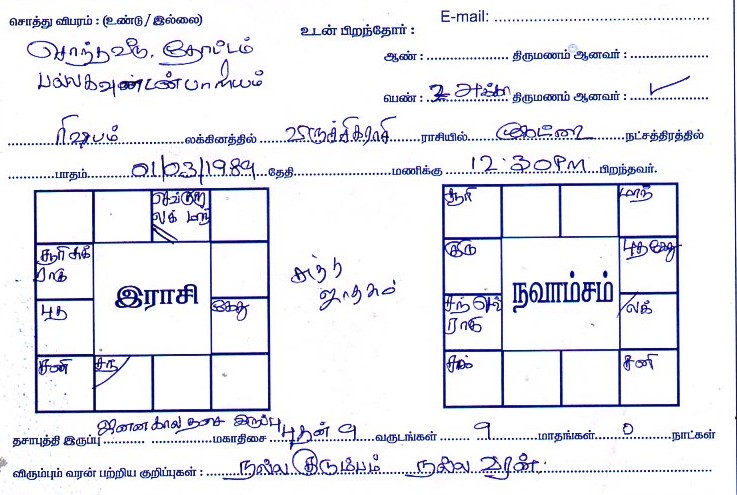 சொத்து விபரம் : (உண்டு / இல்லை)
E-mail:
உடன் பிறந்தோர் :
சொந்தவீடு. தோட்டம்
ஆண் : திருமணம் ஆனவர் :
பெண் : 2 அக்கா திருமணம் ஆனவர் : ✓
ரிஷபம் லக்கினத்தில் விருச்சிகராசி ராசியில் கேட்டை நட்சத்திரத்தில்
பாதம் 01/03/1989 தேதி மணிக்கு 12:30PM பிறந்தவர்.
செவ்குரு
லக் மாந்
சூரி சுக்
ராகு
புத
கேது
சனி
சந்
இராசி
சுத்த
ஜாதகம்
சூரி
மாந்
குரு
புத கேது
சந் செவ்
ராகு
லக்
சுக்
சனி
நவாம்சம்
ஜனன கால தசை இருப்பு
தசாபுத்தி இருப்பு மகாதிசை புதன் 9 வருடங்கள் 9 மாதங்கள் 0 நாட்கள்
விரும்பும் வரன் பற்றிய குறிப்புகள் : நல்ல குடும்பம் நல்ல வரன்.